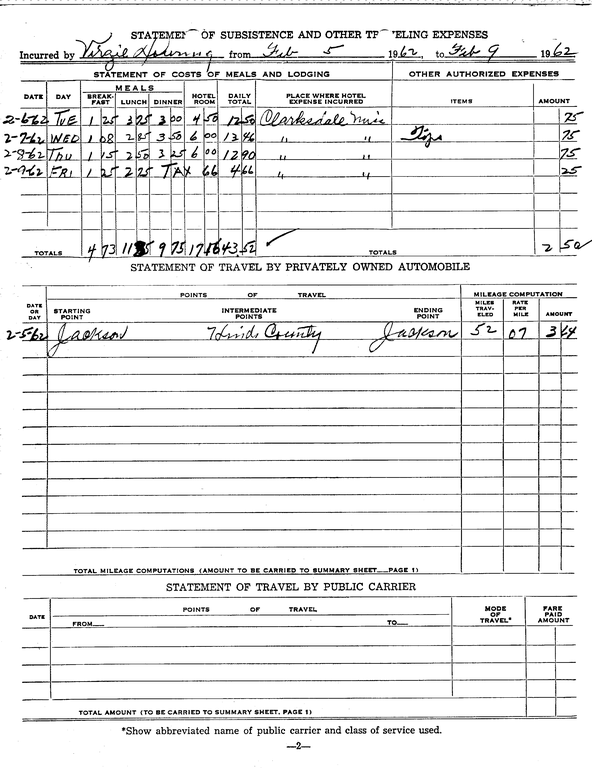 STATEMEN OF SUBSISTENCE AND OTHER TR ELING EXPENSES
Incurred by Virgie Downing from Feb 5 1962, to Feb 9 1962
STATEMENT OF COSTS OF MEALS AND LODGING OTHER AUTHORIZED EXPENSES
DATE DAY MEALS BREAK-FAST LUNCH DINNER HOTEL ROOM DAILY TOTAL PLACE WHERE HOTEL EXPENSE INCURRED ITEMS AMOUNT
2-6-62 TUE 1 25 3 75 3 00 4 50 12 50 Clarksdale Miss 75
2-7-62 WED 1 08 2 85 3 50 6 00 13 46 " " Tips 75
2-8-62 THU 1 15 2 50 3 25 6 00 12 90 " " 75
2-9-62 FRI 1 25 2 25 TAX 66 4 66 " " 25
TOTALS 4 73 11 35 9 75 17 16 43 52 TOTALS 2 50
STATEMENT OF TRAVEL BY PRIVATELY OWNED AUTOMOBILE
DATE OR DAY POINTS OF TRAVEL MILEAGE COMPUTATION
STARTING POINT INTERMEDIATE POINTS ENDING POINT MILES TRAV-ELED RATE PER MILE AMOUNT
2-5-62 Jackson Hinds County Jackson 52 07 3 64
TOTAL MILEAGE COMPUTATIONS (AMOUNT TO BE CARRIED TO SUMMARY SHEET PAGE 1)
STATEMENT OF TRAVEL BY PUBLIC CARRIER
DATE POINTS OF TRAVEL MODE OF TRAVEL* FARE PAID AMOUNT
FROM TO
TOTAL AMOUNT (TO BE CARRIED TO SUMMARY SHEET, PAGE 1)
*Show abbreviated name of public carrier and class of service used.
—2—